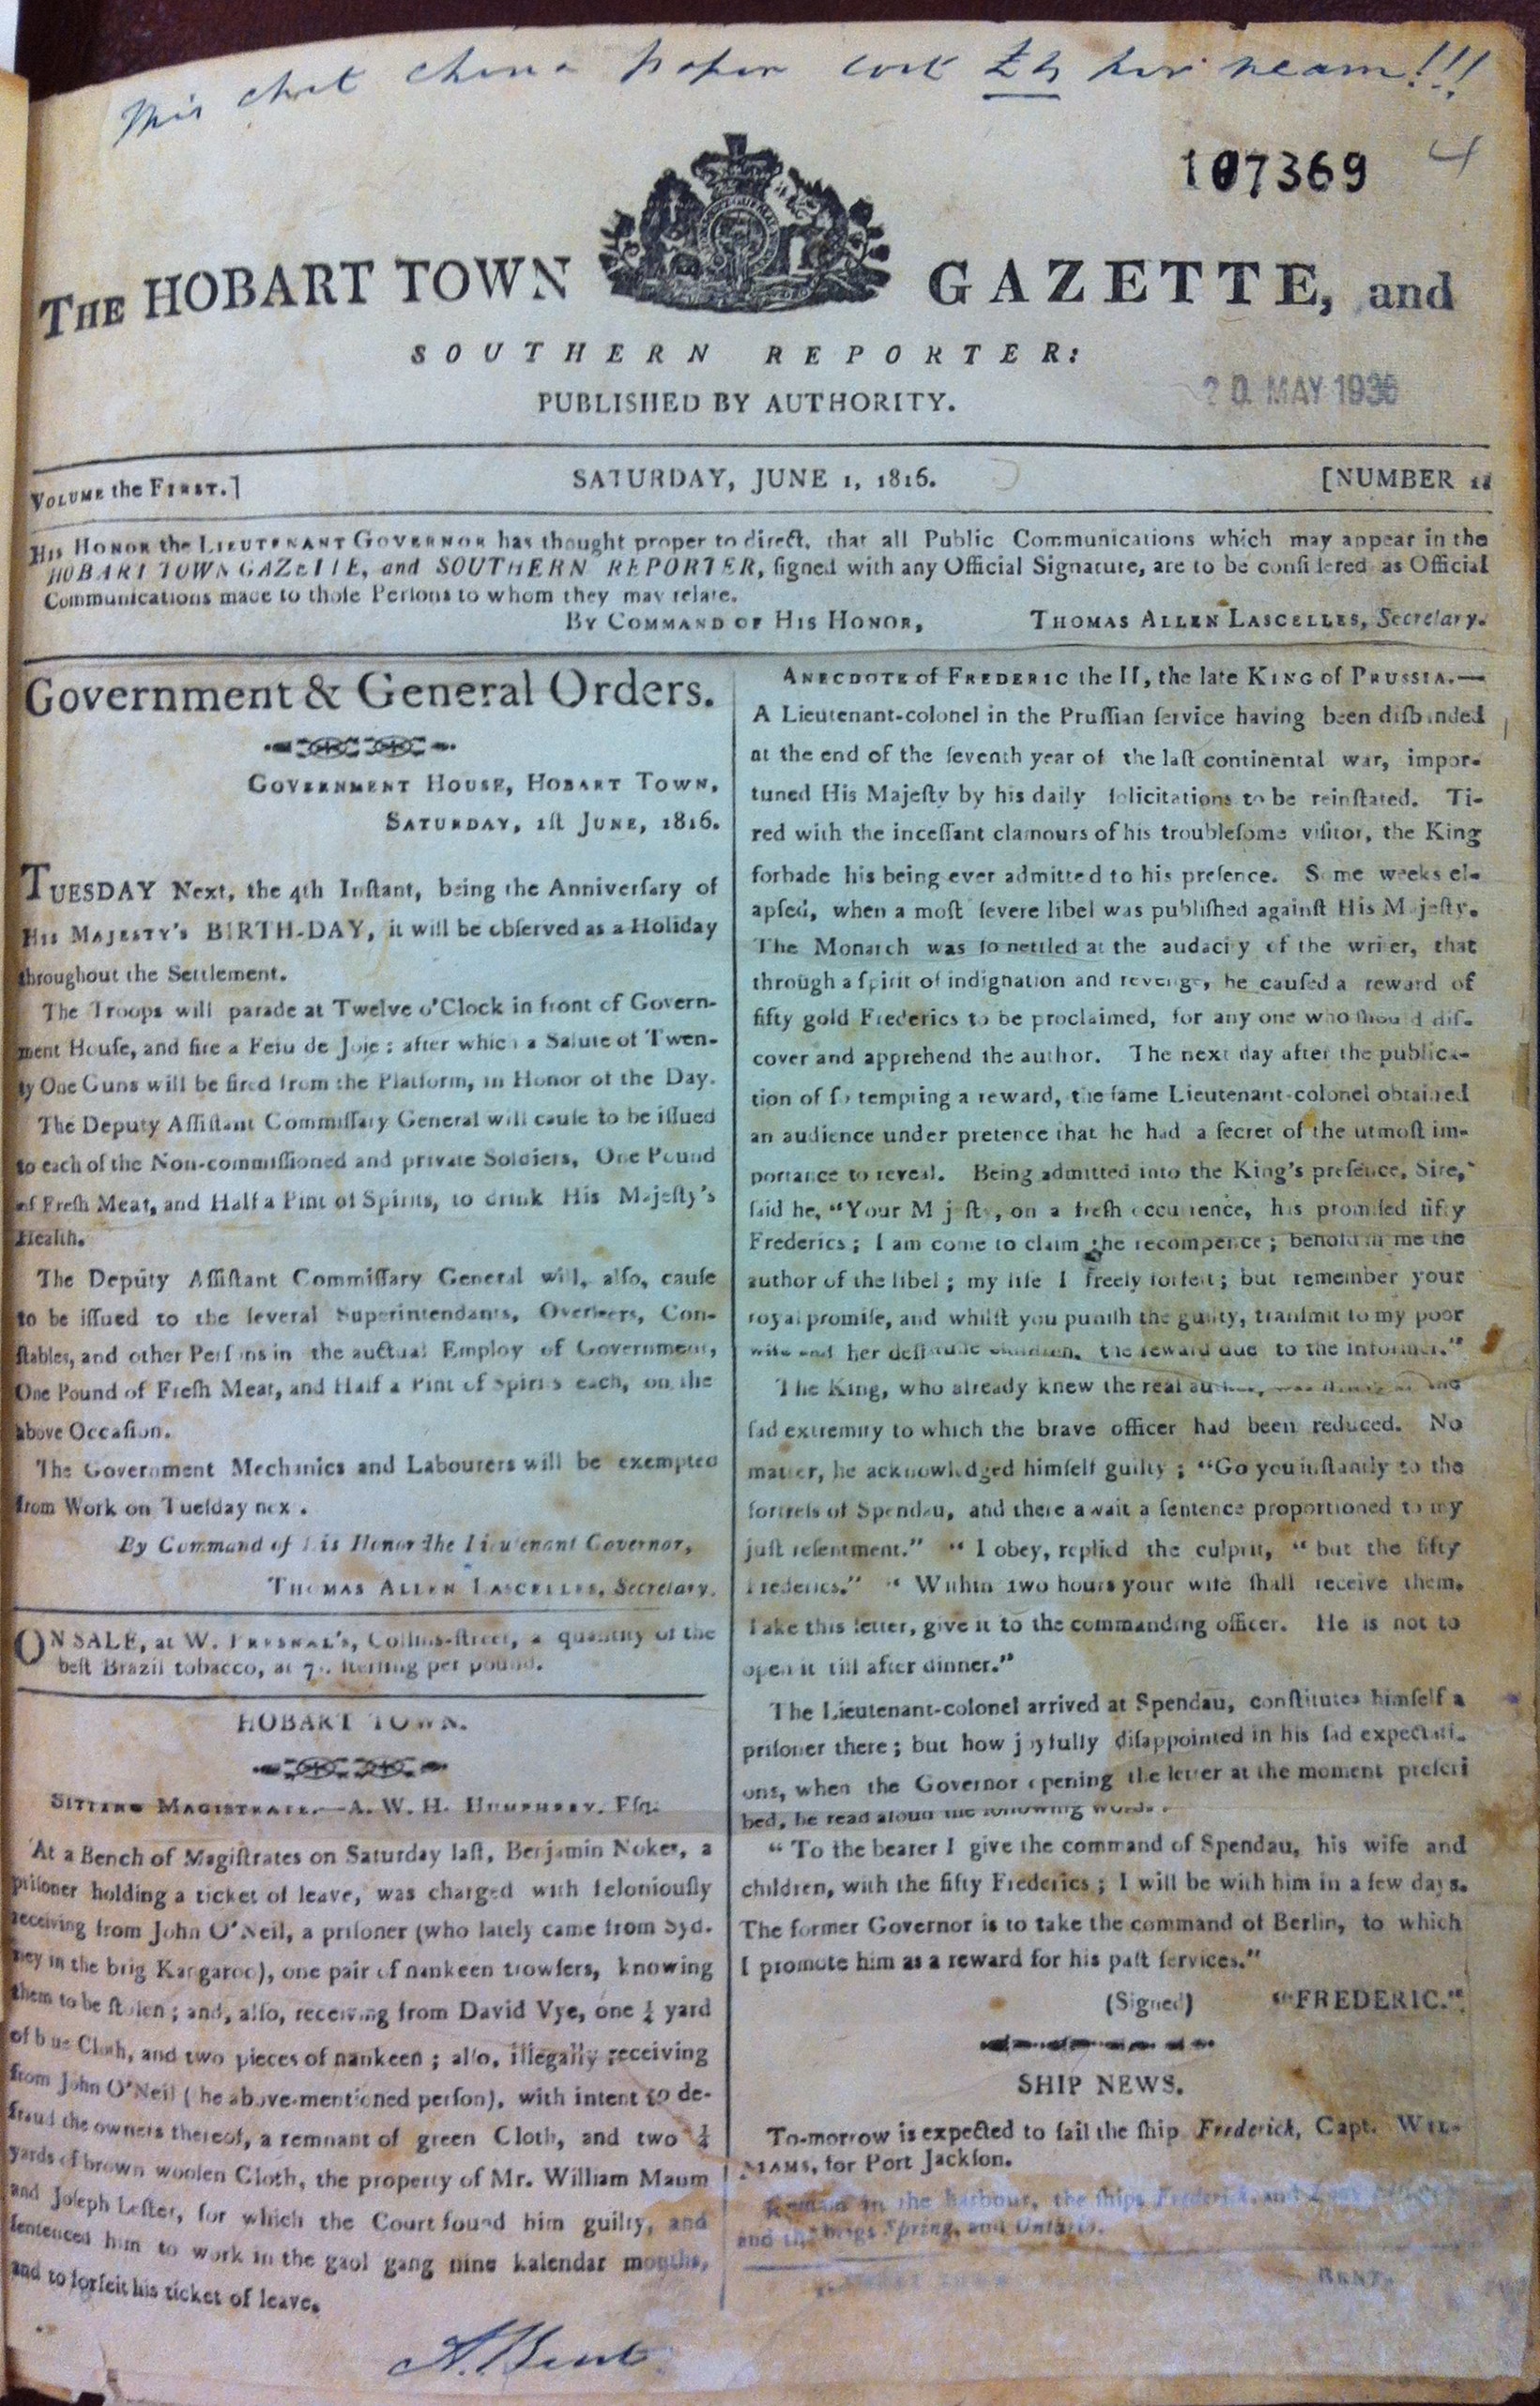 This china paper cost £2 per ream!!!
107369 4
THE HOBART TOWN GAZETTE, and
SOUTHERN REPORTER:
PUBLISHED BY AUTHORITY.
20 MAY 1936
VOLUME the FIRST.] SATURDAY, JUNE 1, 1816. [NUMBER
HIS HONOR the LIEUTENANT GOVERNOR has thought proper to direct, that all Public Communications which may appear in the
HOBART TOWN GAZETTE, and SOUTHERN REPORTER, ſigned with any Official Signature, are to be conſidered as Official
Communications made to thoſe Perſons to whom they may relate.
BY COMMAND OF HIS HONOR, THOMAS ALLEN LASCELLES, Secretary.
Government & General Orders.
GOVERNMENT HOUSE, HOBART TOWN,
SATURDAY, 1ſt JUNE, 1816.
TUESDAY Next, the 4th Inſtant, being the Anniverſary of
HIS MAJESTY'S BIRTH-DAY, it will be obſerved as a Holiday
throughout the Settlement.
The Troops will parade at Twelve o'Clock in front of Govern-
ment Houſe, and fire a Feiu de Joie: after which a Salute of Twen-
ty One Guns will be fired from the Platform, in Honor of the Day.
The Deputy Aſſiſtant Commiſſary General will cauſe to be iſſued
to each of the Non-commiſſioned and private Soldiers, One Pound
of Freſh Meat, and Half a Pint of Spirits, to drink His Majeſty's
Health.
The Deputy Aſſiſtant Commiſſary General will, alſo, cauſe
to be iſſued to the ſeveral Superintendants, Overſeers, Con-
ſtables, and other Perſons in the auctual Employ of Government,
One Pound of Freſh Meat, and Half a Pint of Spirits each, on the
above Occaſion.
The Government Mechanics and Labourers will be exempted
from Work on Tueſday next.
By Command of His Honor the Lieutenant Governor,
THOMAS ALLEN LASCELLES, Secretary.
ON SALE, at W. Collins-ſtreet, a quantity of the
beſt Brazil tobacco, at 7s. ſterling per pound.
HOBART TOWN.
SITTING MAGISTRATE.—A. W. H. HUMPHREY, Eſq.
At a Bench of Magiſtrates on Saturday laſt, Benjamin Nokes, a
priſoner holding a ticket of leave, was charged with feloniouſly
receiving from John O'Neil, a priſoner (who lately came from Syd-
ney in the brig Kangaroo), one pair of nankeen trowſers, knowing
them to be ſtolen; and, alſo, receiving from David Vye, one ¼ yard
of blue Cloth, and two pieces of nankeen; alſo, illegally receiving
from John O'Neil (the above-mentioned perſon), with intent to de-
fraud the owners thereof, a remnant of green Cloth, and two ¼
yards of brown woolen Cloth, the property of Mr. William Maum
and Joſeph Leſter, for which the Court found him guilty, and
ſentenced him to work in the gaol gang nine kalendar months,
and to forfeit his ticket of leave.
A. Bent
ANECDOTE of FREDERIC the II, the late KING of PRUSSIA.—
A Lieutenant-colonel in the Pruſſian ſervice having been diſbanded
at the end of the ſeventh year of the laſt continental war, impor-
tuned His Majeſty by his daily ſolicitations to be reinſtated. Ti-
red with the inceſſant clamours of his troubleſome viſitor, the King
forbade his being ever admitted to his preſence. Some weeks el-
apſed, when a moſt ſevere libel was publiſhed againſt His Majeſty.
The Monarch was ſo nettled at the audacity of the writer, that
through a ſpirit of indignation and revenge, he cauſed a reward of
fifty gold Frederics to be proclaimed, for any one who ſhould diſ-
cover and apprehend the author. The next day after the publica-
tion of ſo tempting a reward, the ſame Lieutenant-colonel obtained
an audience under pretence that he had a ſecret of the utmoſt im-
portance to reveal. Being admitted into the King's preſence, Sire,"
ſaid he, "Your Majeſty, on a freſh occurrence, has promiſed fifty
Frederics; I am come to claim the recompence; behold in me the
author of the libel; my life I freely forfeit; but remember your
royal promiſe, and whilſt you puniſh the guilty, tranſmit to my poor
wife and her deſtitute children, the reward due to the informer."
The King, who already knew the real author, was the
ſad extremity to which the brave officer had been reduced. No
matter, he acknowledged himſelf guilty; "Go you inſtantly to the
fortreſs of Spendau, and there await a ſentence proportioned to my
juſt reſentment." "I obey, replied the culprit, "but the fifty
Frederics." "Within two hours your wife ſhall receive them.
Take this letter, give it to the commanding officer. He is not to
open it till after dinner."
The Lieutenant-colonel arrived at Spendau, conſtitutes himſelf a
priſoner there; but how joyfully diſappointed in his ſad expectati-
ons, when the Governor opening the letter at the moment preſcri
bed, he read aloud the following words:
"To the bearer I give the command of Spendau, his wife and
children, with the fifty Frederics; I will be with him in a few days.
The former Governor is to take the command of Berlin, to which
I promote him as a reward for his paſt ſervices."
(Signed) "FREDERIC."
SHIP NEWS.
To-morrow is expected to ſail the ſhip Frederick, Capt. WIL-
LIAMS, for Port Jackſon.
Remain in the harbour, the ſhips Frederick, and
and the brigs Spring, and Ontario.
BENT.